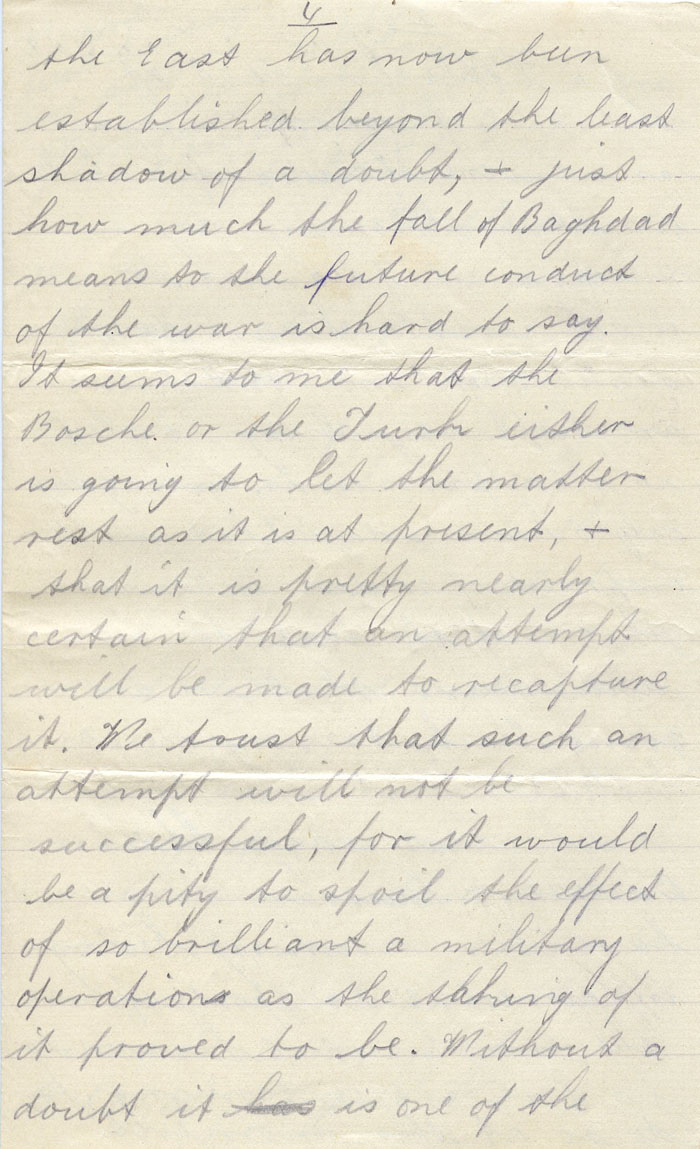 4
the East has now been
established beyond the least
shadow of a doubt, + just
how much the fall of Baghdad
means to the future conduct
of the war is hard to say.
It seems to me that the
Bosche or the Turk either
is going to let the matter
rest as it is at present, +
that it is pretty nearly
certain that an attempt
will be made to recapture
it. We trust that such an
attempt will not be
successful, for it would
be a pity to spoil the effect
of so brilliant a military
operations as the taking of
it proved to be. Without a
doubt it has is one of the